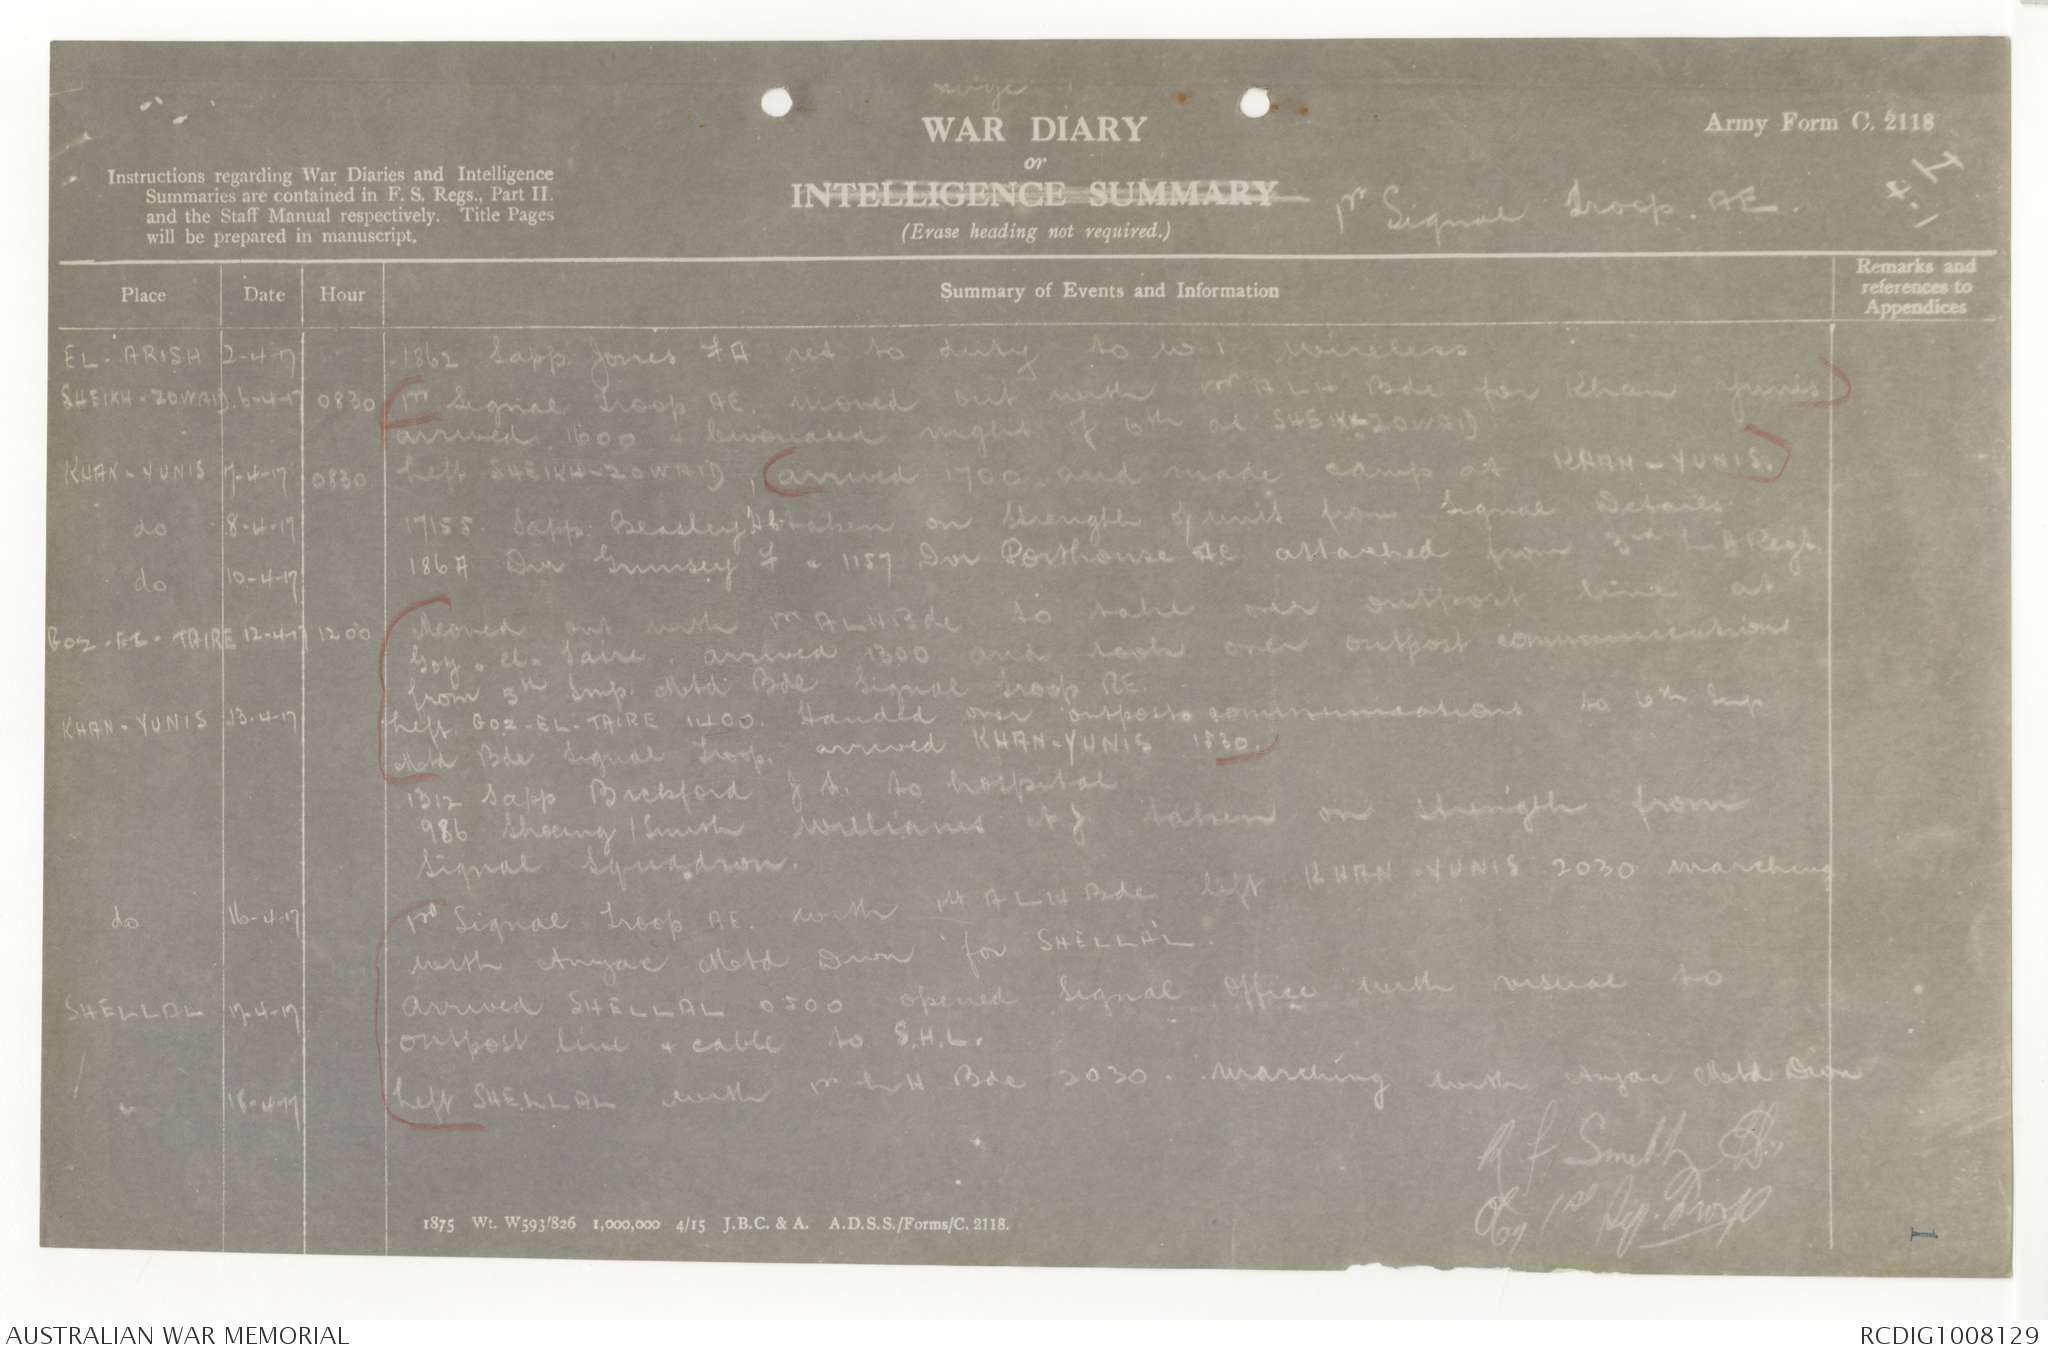 WAR DIARY
or
INTELLIGENCE SUMMARY
(Erase heading not required.)
Army Form C. 2118
Instructions regarding War Diaries and Intelligence
Summaries are contained in F. S. Regs., Part II.
and the Staff Manual respectively. Title Pages
will be prepared in manuscript.
1st Signal Troop. AE.
Place Date Hour Summary of Events and Information Remarks and references to Appendices
EL-ARISH 2-4-17 1862 Sapp. Jones FA ret to duty to W.T wireless
SHEIKH-ZOWAID. 6-4-17 0830 1st Signal Troop AE. moved out with 1st ALH Bde for Khan Yunis
arrived 1600 & bivouaced night of 6th at SHEIKH-ZOWAID
KHAN-YUNIS 7-4-17 0830 Left SHEIKH-ZOWAID, arrived 1700 and made camp at KHAN-YUNIS.
do 8-4-17 17155. Sapp. Beasley taken on strength of unit from Signal Details
do 10-4-17 186A Dvr Gumsey F & 1157 Dvr Porthouse AE attached from 3rd LH Regt.
GOZ-EL-TAIRE 12-4-17 1200 Moved out with 1st ALH Bde to take over outpost line at
Goz-el-Taire. arrived 1300 and took over outpost communications
from 5th Imp. Mtd Bde Signal Troop RE.
KHAN-YUNIS 13-4-17 Left GOZ-EL-TAIRE 1400. Handed over outposts communications to 6th Imp
Mtd Bde Signal Troop. arrived KHAN-YUNIS 1530.
1312 Sapp Bickford J to hospital
986 Shoeing/Smith Williams taken on strength from
Signal Squadron.
do 16-4-17 1st Signal Troop AE. with 1st ALH Bde left KHAN-YUNIS 2030 marching
with Anzac Mtd Divn for SHELLAL.
SHELLAL 17-4-17 arrived SHELLAL 0500 opened Signal Office with visual to
outpost line & cable to S.H.L.
" 18-4-17 Left SHELLAL with 1st LH Bde 2030. Marching with Anzac Mtd Divn
R F Smith
Oc 1st Sig. Troop
1875 Wt. W593/826 1,000,000 4/15 J.B.C. & A. A.D.S.S./Forms/C. 2118.
1
AUSTRALIAN WAR MEMORIAL
RCDIG1008129